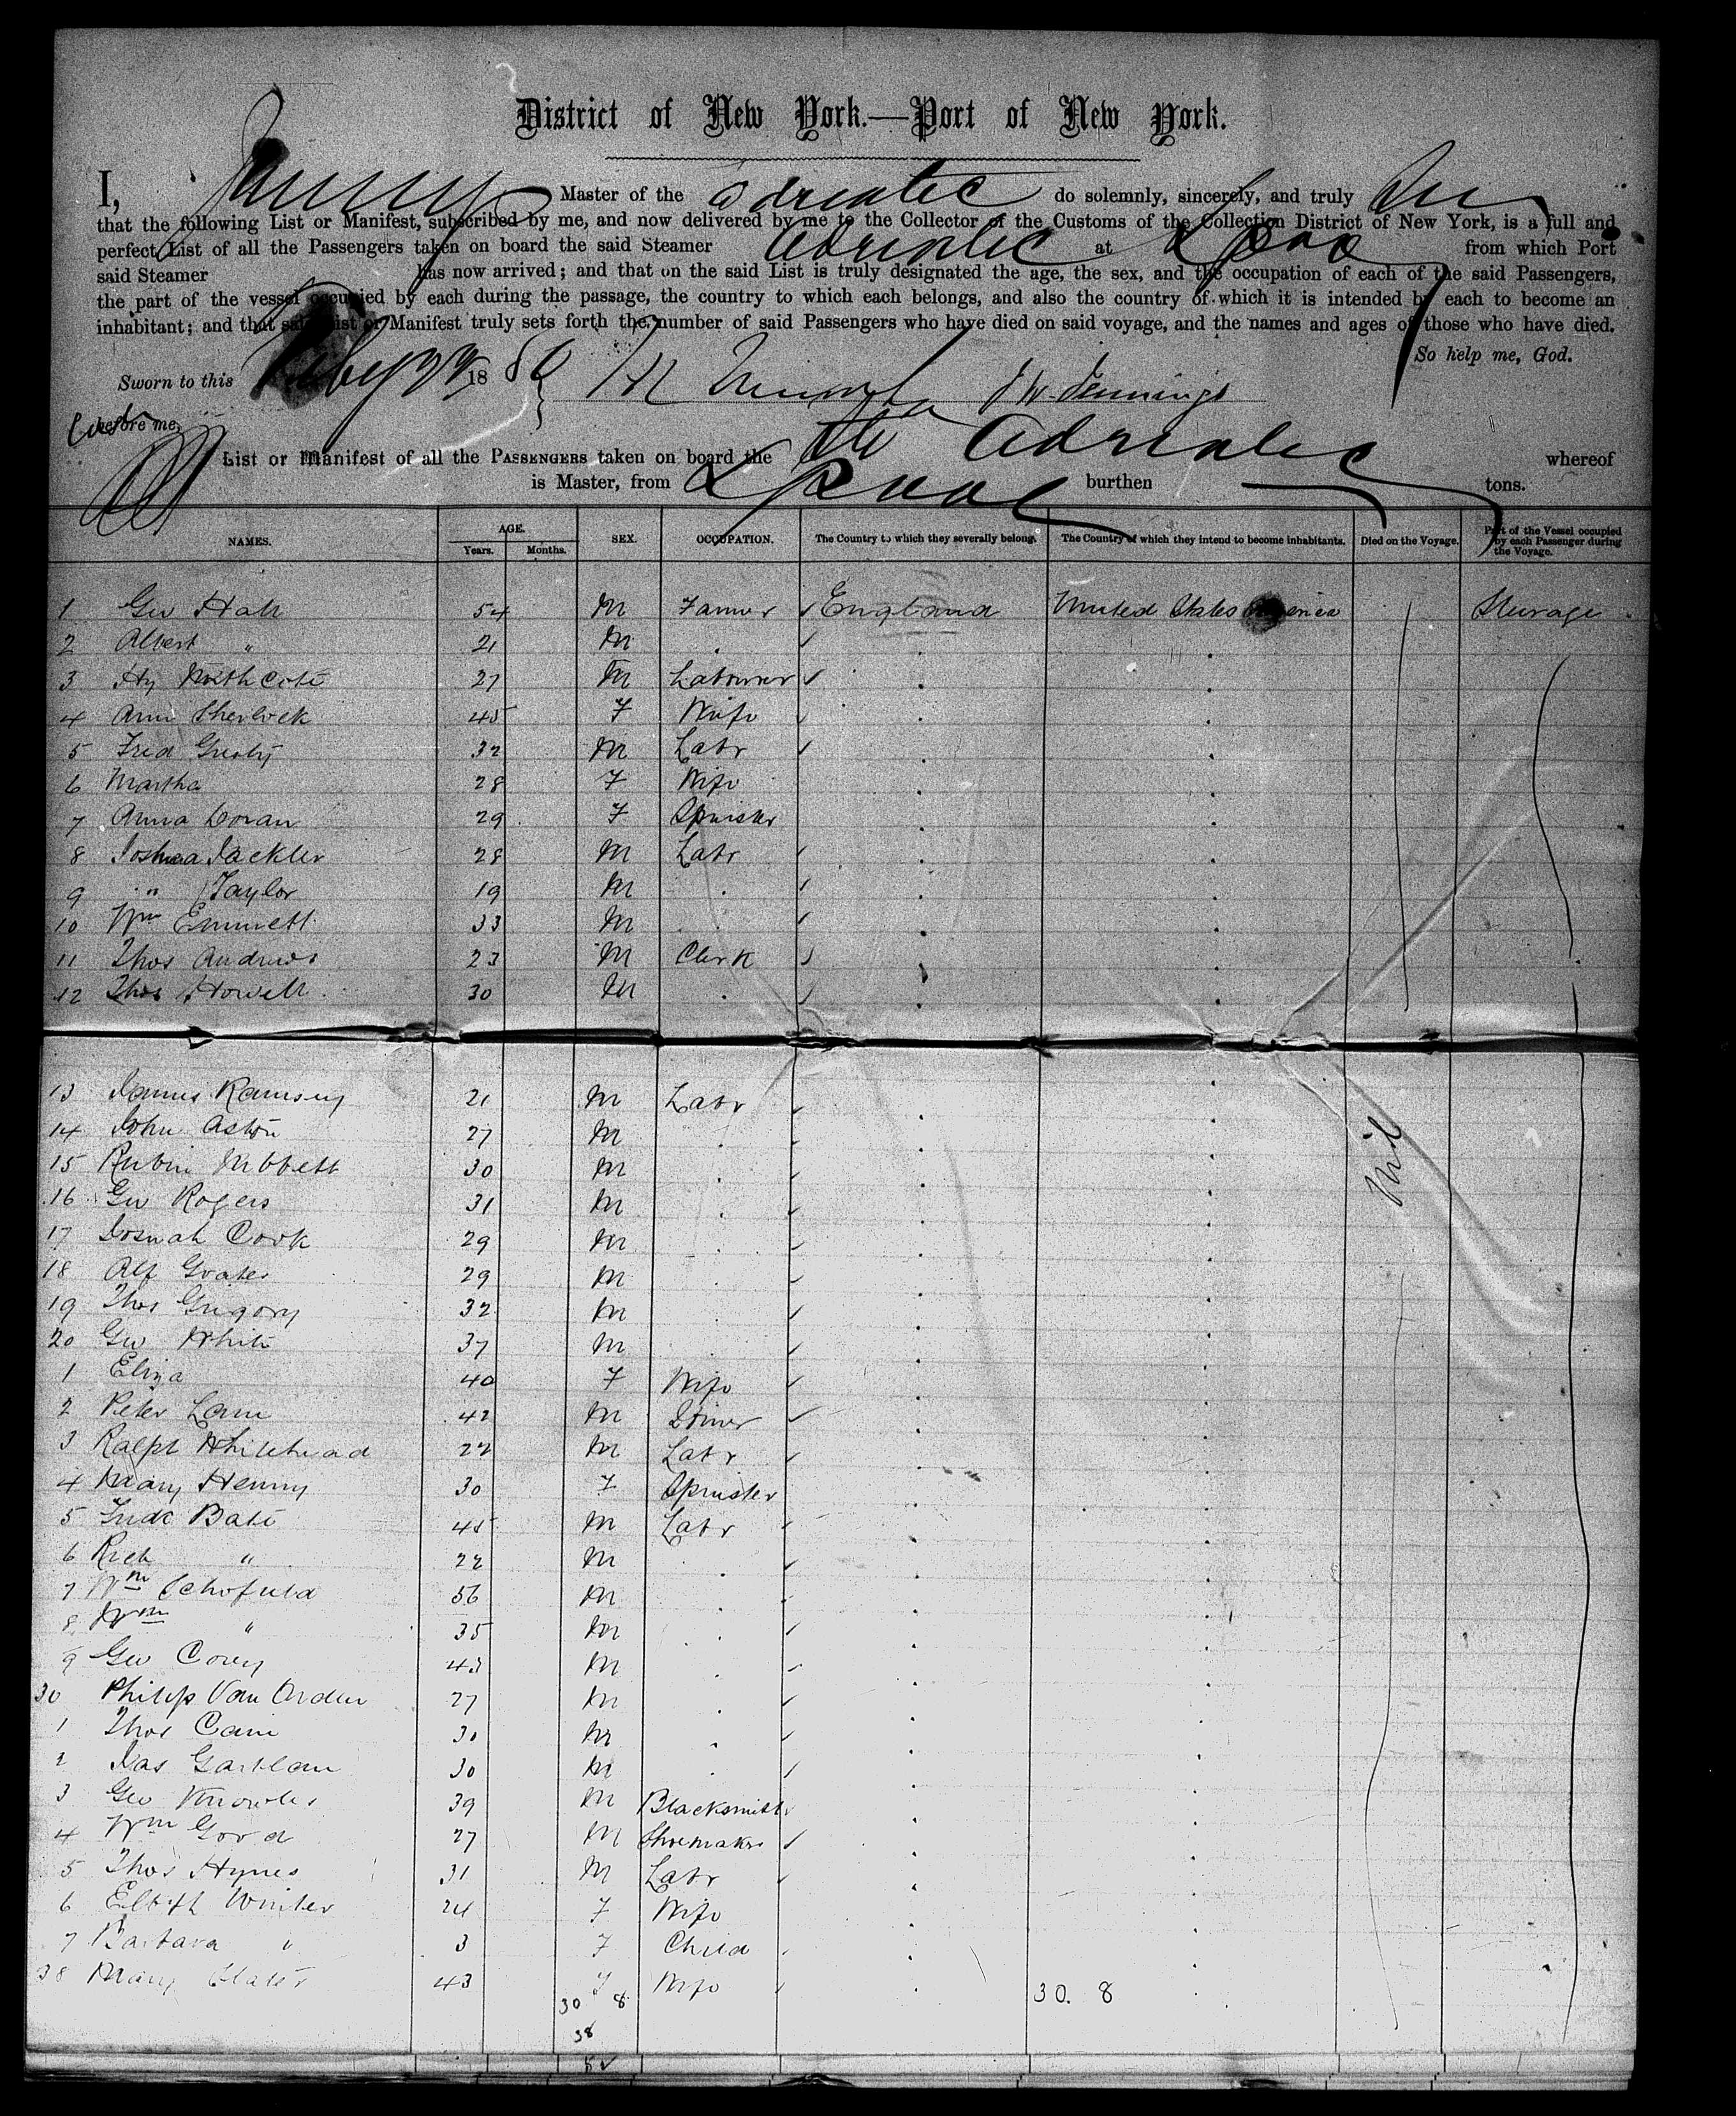 District of New York.—Port of New York.
I, Jennings Master of the Adriatic do solemnly, sincerely, and truly
that the following List or Manifest, subscribed by me, and now delivered by me to the Collector of the Customs of the Collection District of New York, is a full and
perfect List of all the Passengers taken on board the said Steamer Adriatic at Lpool from which Port
said Steamer has now arrived; and that on the said List is truly designated the age, the sex, and the occupation of each of the said Passengers,
the part of the vessel occupied by each during the passage, the country to which each belongs, and also the country of which it is intended by each to become an
inhabitant; and that said List or Manifest truly sets forth the number of said Passengers who have died on said voyage, and the names and ages of those who have died.
So help me, God.
Sworn to this Feby 18 80 J W Jennings
before me,
List or Manifest of all the PASSENGERS taken on board the Adriatic whereof
is Master, from Lpool burthen tons.
NAMES. AGE. Years. Months. SEX. OCCUPATION. The Country to which they severally belong. The Country of which they intend to become inhabitants. Died on the Voyage. Part of the Vessel occupied by each Passenger during the Voyage.
1 Geo Hall 54 M Farmer England United States America Steerage
2 Albert " 21 M
3 Hy Northcote 27 M Labourer
4 Ann Sherlock 45 F Wife
5 Fred 32 M Labr
6 Martha 28 F Wife
7 Anna Doran 29 F Spinster
8 Joshua Jackler 28 M Labr
9 " Taylor 19 M
10 Wm Emmett 33 M
11 Thos Andrews 23 M Clerk
12 Thos Howell 30 M
13 James Ramsey 21 M Labr
14 John Aston 27 M
15 Rubin Nibbett 30 M
16 Geo Rogers 31 M
17 Josuah Cook 29 M
18 Alf 29 M
19 Thos Gregory 32 M
20 Geo White 37 M
1 Eliza 40 F Wife
2 Peter Lane 42 M Joiner
3 Ralph Whitehead 22 M Labr
4 Mary Henny 30 F Spinster
5 Fredk Bate 45 M Labr
6 Rich " 22 M
7 Wm Schofield 56 M
8 Wm " 35 M
9 Geo Corey 43 M
30 Philip Van Orden 27 M
1 Thos Cain 30 M
2 Jas Gartlan 30 M
3 Geo Knowles 39 M Blacksmith
4 Wm Good 27 M Shoemaker
5 Thos Hynes 31 M Labr
6 Elbth Winter 24 F Wife
7 Barbara " 3 F Child
38 Mary Slater 43 F Wife
30 8 30. 8
38
Nil